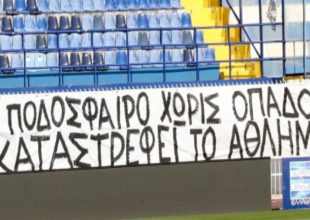 ΠΟΔΟΣΦΑΙΡΟ ΧΩΡΙΣ ΟΠΑΔΟ
ΚΑΤΑΣΤΡΕΦΕΙ ΤΟ ΑΘΛΗΜ